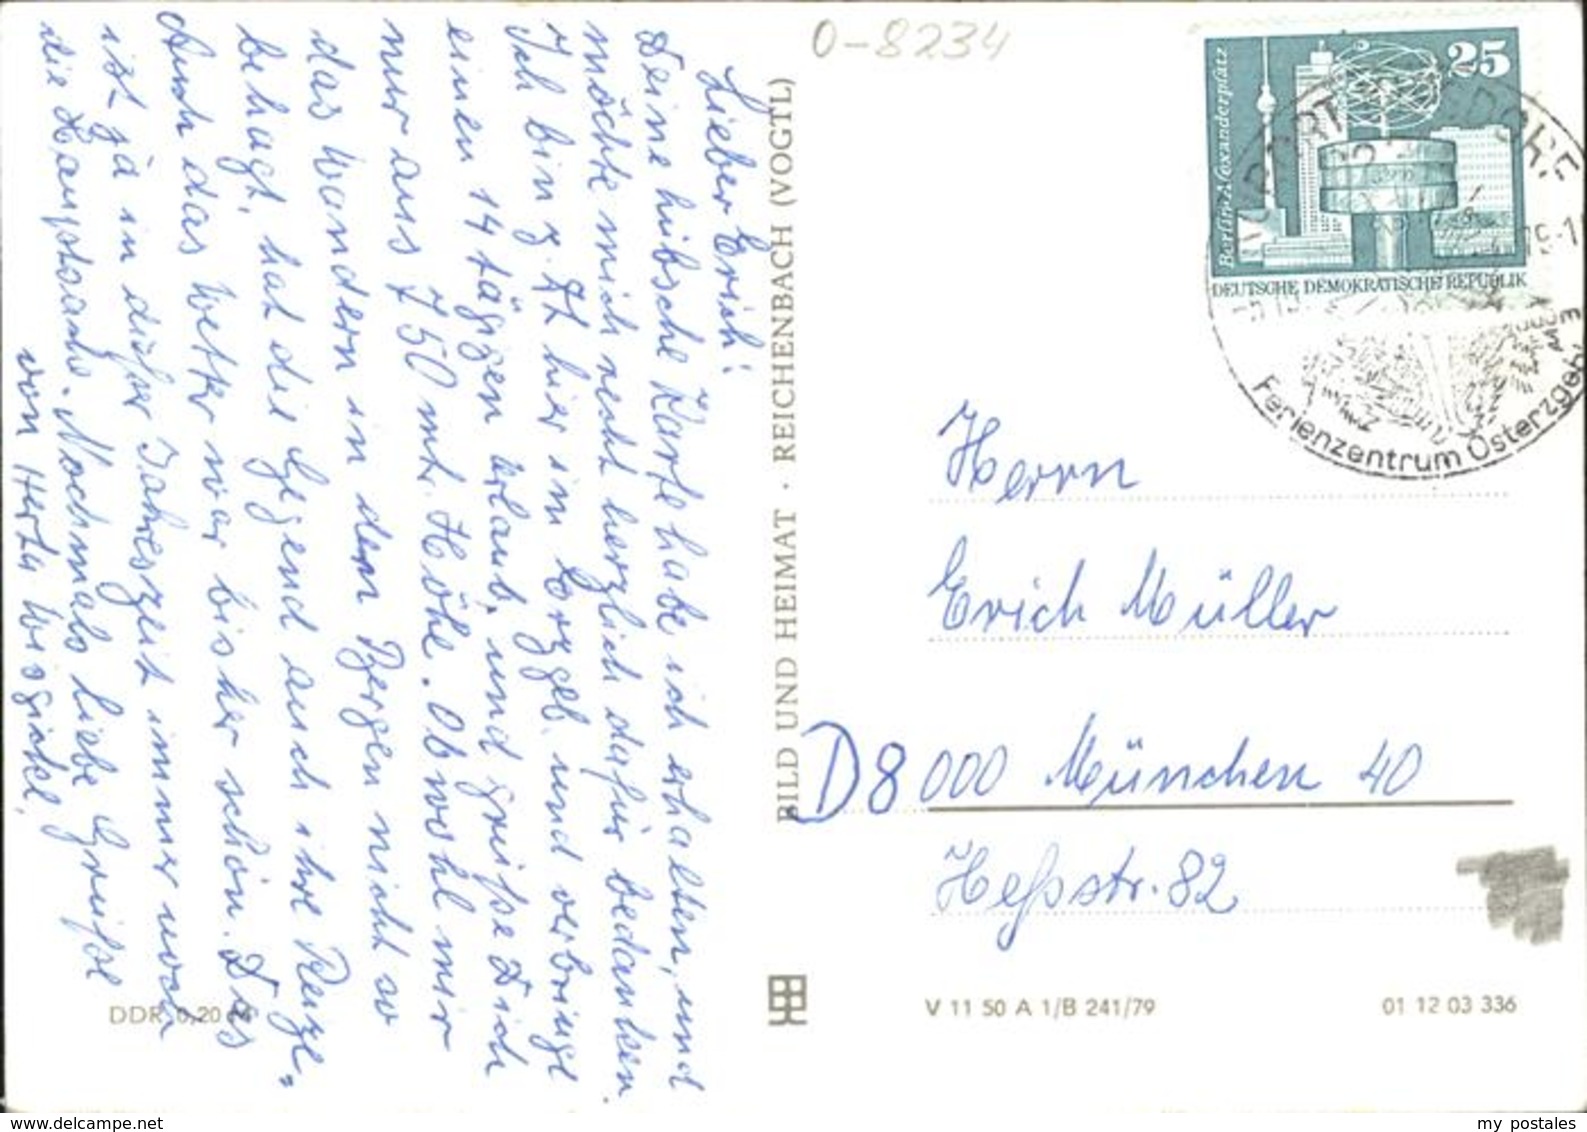 Lieber Erich!
Deine hübsche Karte habe ich erhalten, und
möchte mich recht herzlich dafür bedanken.
Ich bin z. Zt. hier im Erzgeb. und verbringe
einen 14 tägigen Urlaub, und grüße Dich
nur aus 750 mtr. Höhe. Obwohl mir
das Wandern in den Bergen nicht so
behagt, hat die Gegend auch ihre Reize.
Auch das Wetter war bisher schön. Das
ist ja in dieser Jahreszeit immer noch
die Hauptsache. Nochmals liebe Grüße
von Herta
BILD UND HEIMAT · REICHENBACH (VOGTL)
0-8234
25
Berlin-Alexanderplatz
DEUTSCHE DEMOKRATISCHE REPUBLIK
Ferienzentrum Osterzgeb
Herrn
Erich Müller
D8000 München 40
Heßstr. 82
DDR 0,20 M
V 11 50 A 1/B 241/79
01 12 03 336
www.delcampe.net
my_postales